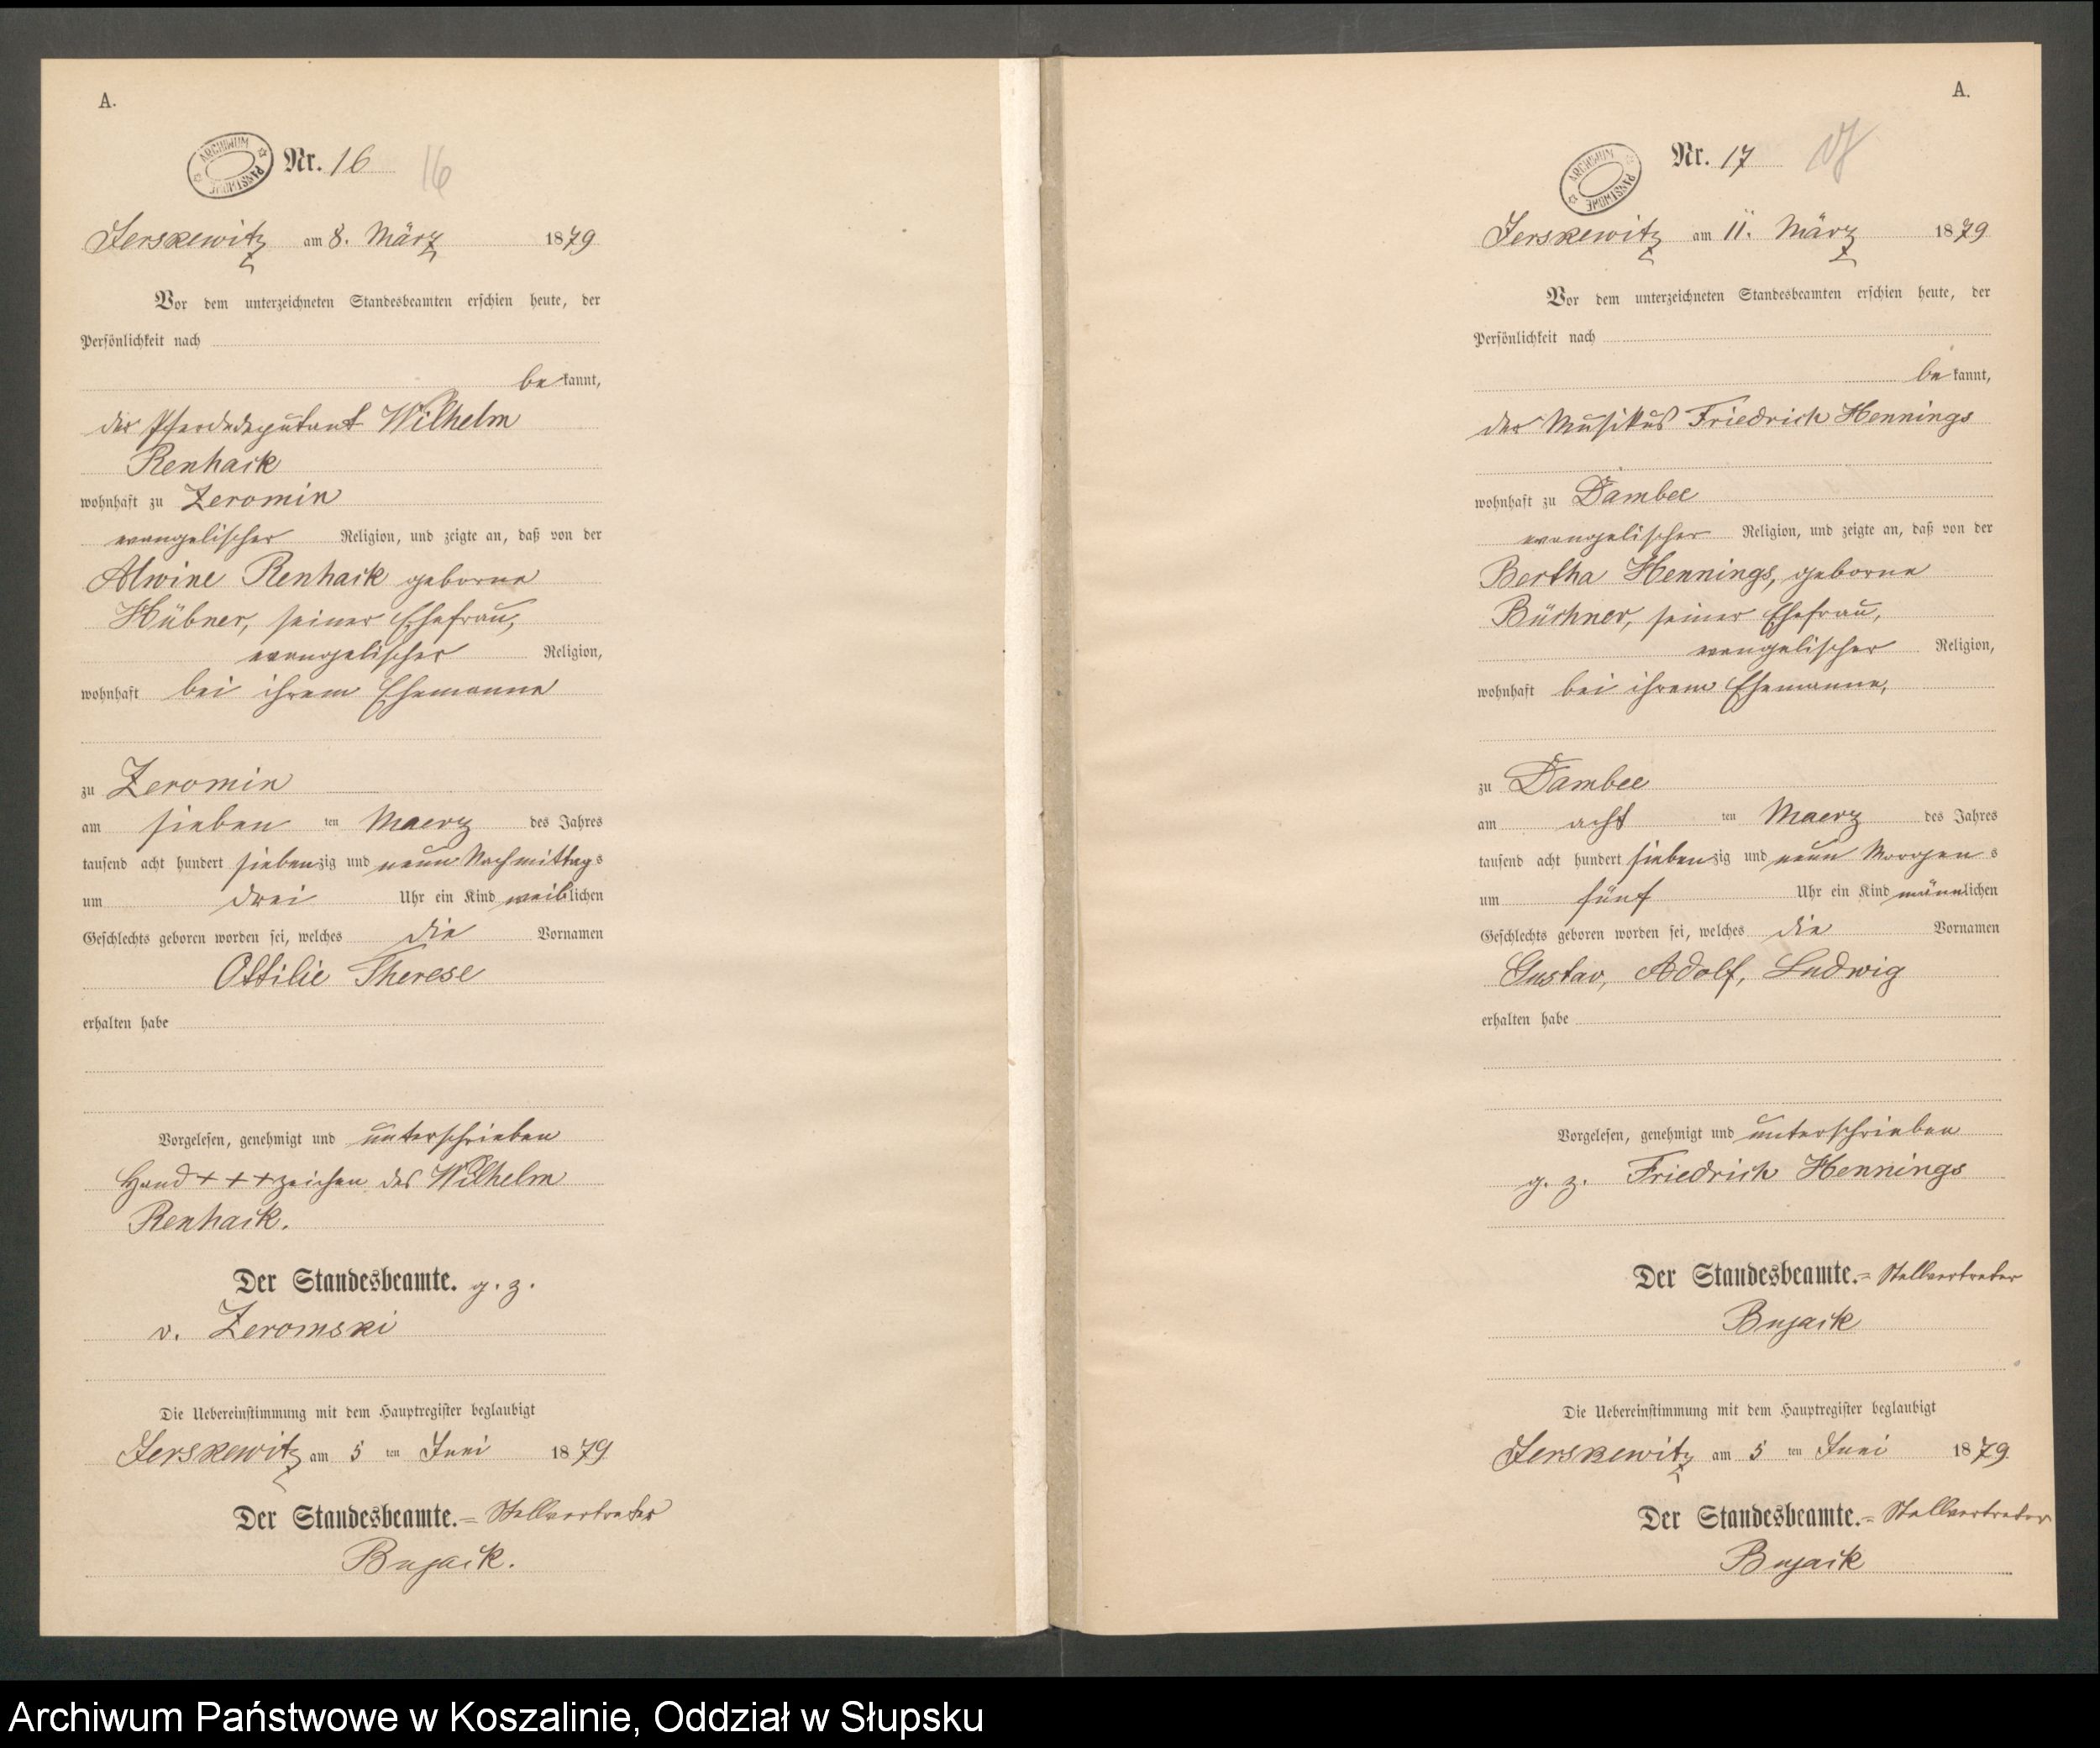 A.
ARCHIWUM PAŃSTWOWE
Nr. 16 16
Jerskewitz am 8. März 1879
Vor dem unterzeichneten Standesbeamten erschien heute, der
Persönlichkeit nach
bekannt,
der Pferdedeputant Wilhelm
Renhack
wohnhaft zu Zeromin
evangelischer Religion, und zeigte an, daß von der
Alwine Renhack geborne
Hübner, seiner Ehefrau,
evangelischer Religion,
wohnhaft bei ihrem Ehemanne
zu Zeromin
am sieben ten Maerz des Jahres
tausend acht hundert siebenzig und neun Nachmittags
um drei Uhr ein Kind weiblichen
Geschlechts geboren worden sei, welches die Vornamen
Ottilie Therese
erhalten habe
Vorgelesen, genehmigt und unterschrieben
Hand + + + zeichen des Wilhelm
Renhack.
Der Standesbeamte. g. z.
v. Zeromski
Die Uebereinstimmung mit dem Hauptregister beglaubigt
Jerskewitz am 5 ten Juni 1879
Der Standesbeamte.= Stellvertreter
Bujack.
A.
ARCHIWUM PAŃSTWOWE
Nr. 17 17
Jerskewitz am 11. März 1879
Vor dem unterzeichneten Standesbeamten erschien heute, der
Persönlichkeit nach
bekannt,
der Musikus Friedrich Hennings
wohnhaft zu Dambee
evangelischer Religion, und zeigte an, daß von der
Bertha Hennings, geborne
Büchner, seiner Ehefrau,
evangelischer Religion,
wohnhaft bei ihrem Ehemanne,
zu Dambee
am acht ten Maerz des Jahres
tausend acht hundert siebenzig und neun Morgens
um fünf Uhr ein Kind männlichen
Geschlechts geboren worden sei, welches die Vornamen
Gustav, Adolf, Ludwig
erhalten habe
Vorgelesen, genehmigt und unterschrieben
g. z. Friedrich Hennings
Der Standesbeamte.= Stellvertreter
Bujack
Die Uebereinstimmung mit dem Hauptregister beglaubigt
Jerskewitz am 5 ten Juni 1879
Der Standesbeamte.= Stellvertreter
Bujack
Archiwum Państwowe w Koszalinie, Oddział w Słupsku